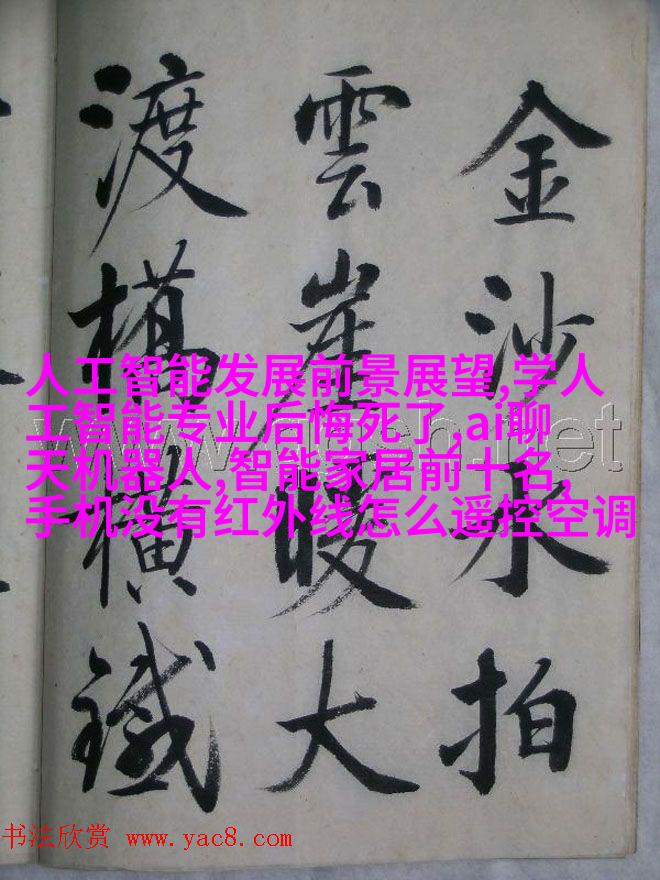 金沙水拍
雲崖暖大
渡橋横鐵
人工智能发展前景展望,学人
工智能专业后悔死了,ai聊
天机器人,智能家居前十名,
手机没有红外线怎么遥控空调
书法欣赏 www.yac8.com